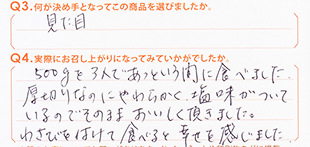 Q3.何が決め手となってこの商品を選びましたか。
見た目
Q4.実際にお召し上がりになってみていかがでしたか。
500gを3人であっという間に食べました。
厚切りなのにやわらかく、塩味がついて
いるのでそのままおいしく頂きました。
わさびを付けて食べると幸せを感じました。